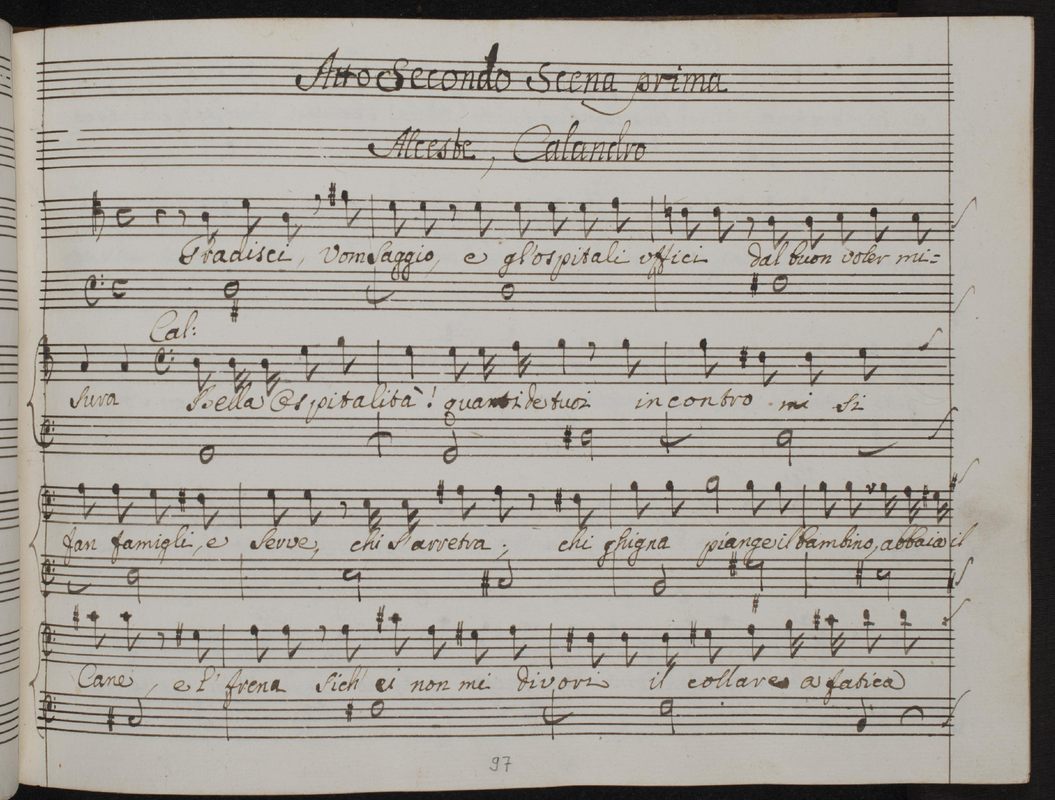 Atto Secondo Scena prima
Alceste, Calandro
Gradisci, l'omaggio, e gl'ospitali uffici dal buon voler mi=
Cal:
sura Bella Ospitalità! quanti de tuoi incontro mi si
fan famigli, e serve, chi s'arretra; chi ghigna piange il bambino, abbaia il
Cane, e l' frena sich' ei non mi divori il collare a fatica
97